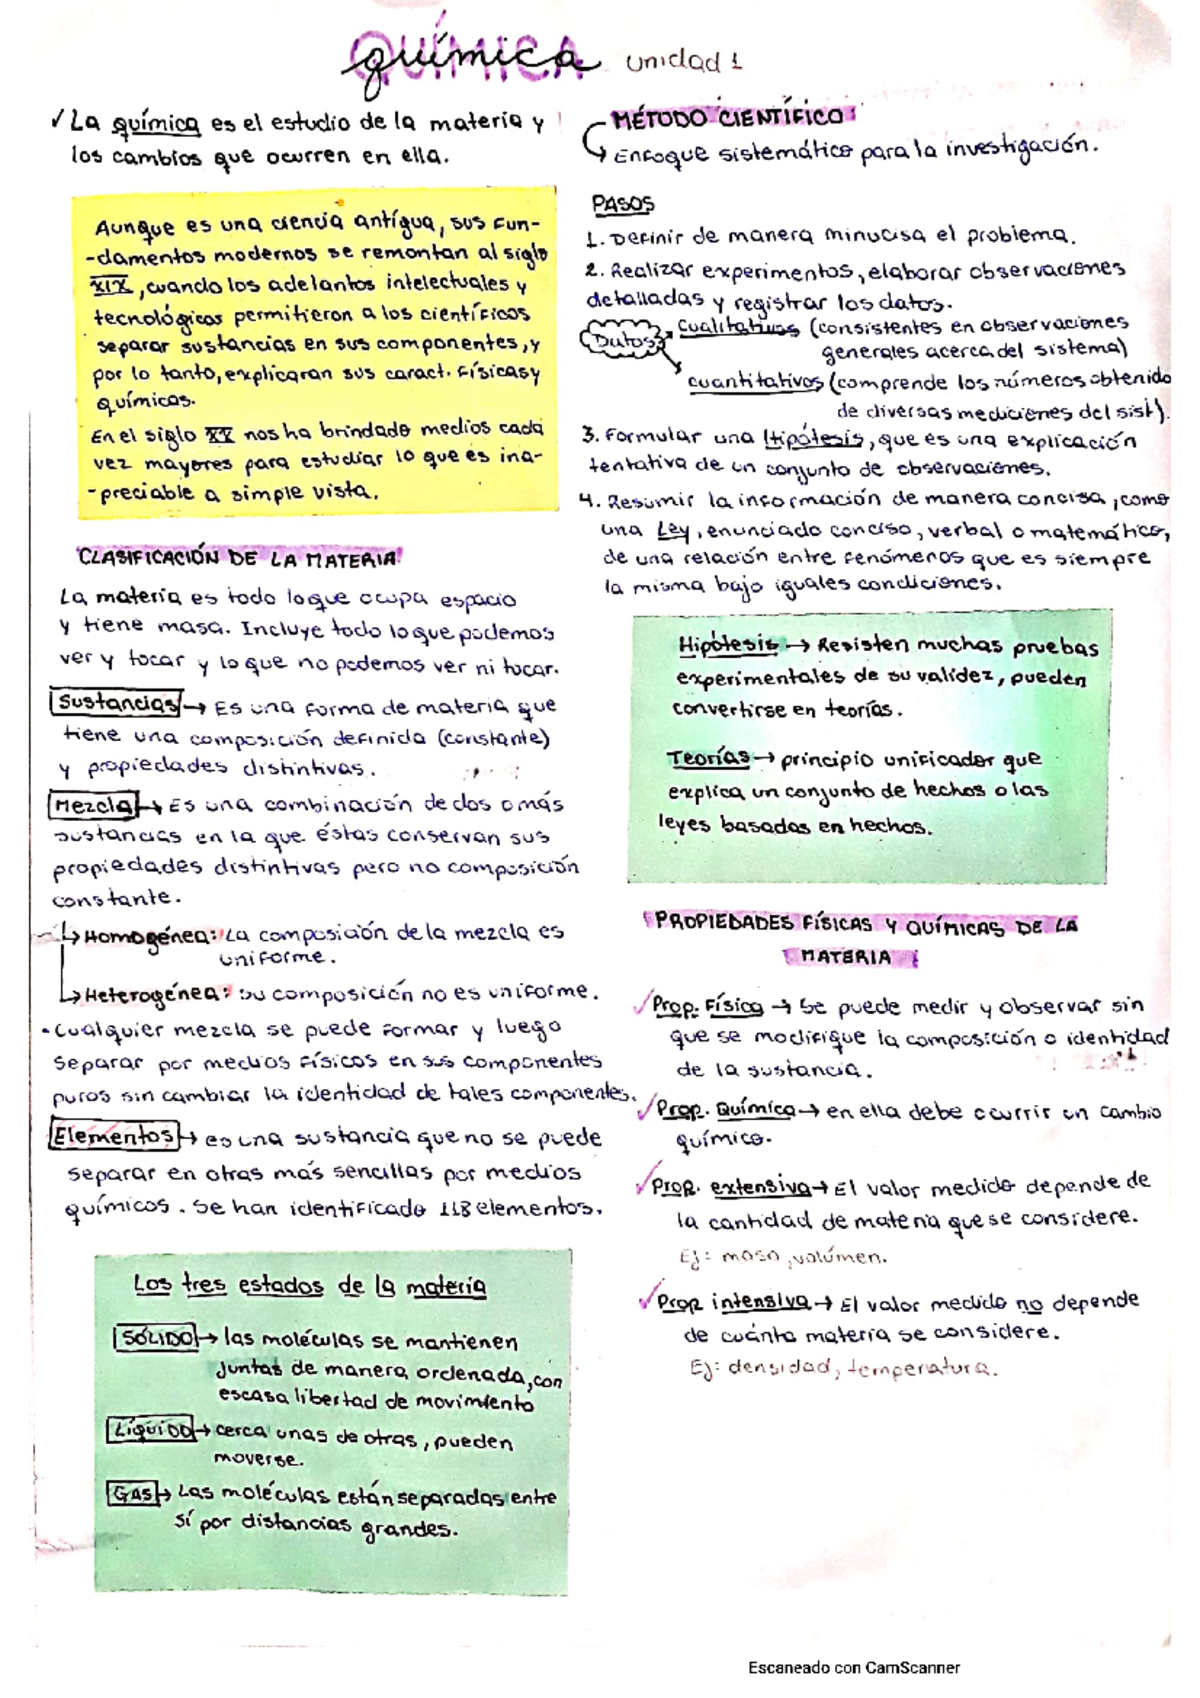 química unidad 1
✓ La química es el estudio de la materia y
los cambios que ocurren en ella.
Aunque es una ciencia antígua, sus fun-
-damentos modernos se remontan al siglo
XIX, cuando los adelantos intelectuales y
tecnológicos permitieron a los científicos
separar sustancias en sus componentes, y
por lo tanto, explicaran sus caract. físicas y
químicas.
En el siglo XX nos ha brindado medios cada
vez mayores para estudiar lo que es ina-
-preciable a simple vista.
CLASIFICACIÓN DE LA MATERIA
La materia es todo lo que ocupa espacio
y tiene masa. Incluye todo lo que podemos
ver y tocar y lo que no podemos ver ni tocar.
Sustancias → Es una forma de materia que
tiene una composición definida (constante)
y propiedades distintivas.
Mezcla → Es una combinación de dos o más
sustancias en la que éstas conservan sus
propiedades distintivas pero no composición
constante.
↳ Homogénea: La composición de la mezcla es
uniforme.
↳ Heterogénea: su composición no es uniforme.
• Cualquier mezcla se puede formar y luego
separar por medios físicos en sus componentes
puros sin cambiar la identidad de tales componentes.
Elementos → es una sustancia que no se puede
separar en otras más sencillas por medios
químicos. Se han identificado 118 elementos.
Los tres estados de la materia
SÓLIDO → las moléculas se mantienen
juntas de manera ordenada, con
escasa libertad de movimiento
Líquido → cerca unas de otras, pueden
moverse.
GAS → Las moléculas están separadas entre
sí por distancias grandes.
MÉTODO CIENTÍFICO:
↳ Enfoque sistemático para la investigación.
PASOS
1. Definir de manera minucisa el problema.
2. Realizar experimentos, elaborar observaciones
detalladas y registrar los datos.
Datos → cualitativos (consistentes en observaciones
generales acerca del sistema)
cuantitativos (comprende los números obtenido
de diversas mediciones del sist).
3. Formular una Hipótesis, que es una explicación
tentativa de un conjunto de observaciones.
4. Resumir la información de manera concisa, como
una Ley, enunciado conciso, verbal o matemático,
de una relación entre fenómenos que es siempre
la misma bajo iguales condiciones.
Hipótesis → Resisten muchas pruebas
experimentales de su validez, pueden
convertirse en teorías.
Teorías → principio unificador que
explica un conjunto de hechos o las
leyes basadas en hechos.
PROPIEDADES FÍSICAS Y QUÍMICAS DE LA
MATERIA
✓ Prop. Física → Se puede medir y observar sin
que se modifique la composición o identidad
de la sustancia.
✓ Prop. Química → en ella debe ocurrir un cambio
químico.
✓ Prop. extensiva → El valor medido depende de
la cantidad de materia que se considere.
Ej: masa, volúmen.
✓ Prop intensiva → El valor medido no depende
de cuánta materia se considere.
Ej: densidad, temperatura.
Escaneado con CamScanner